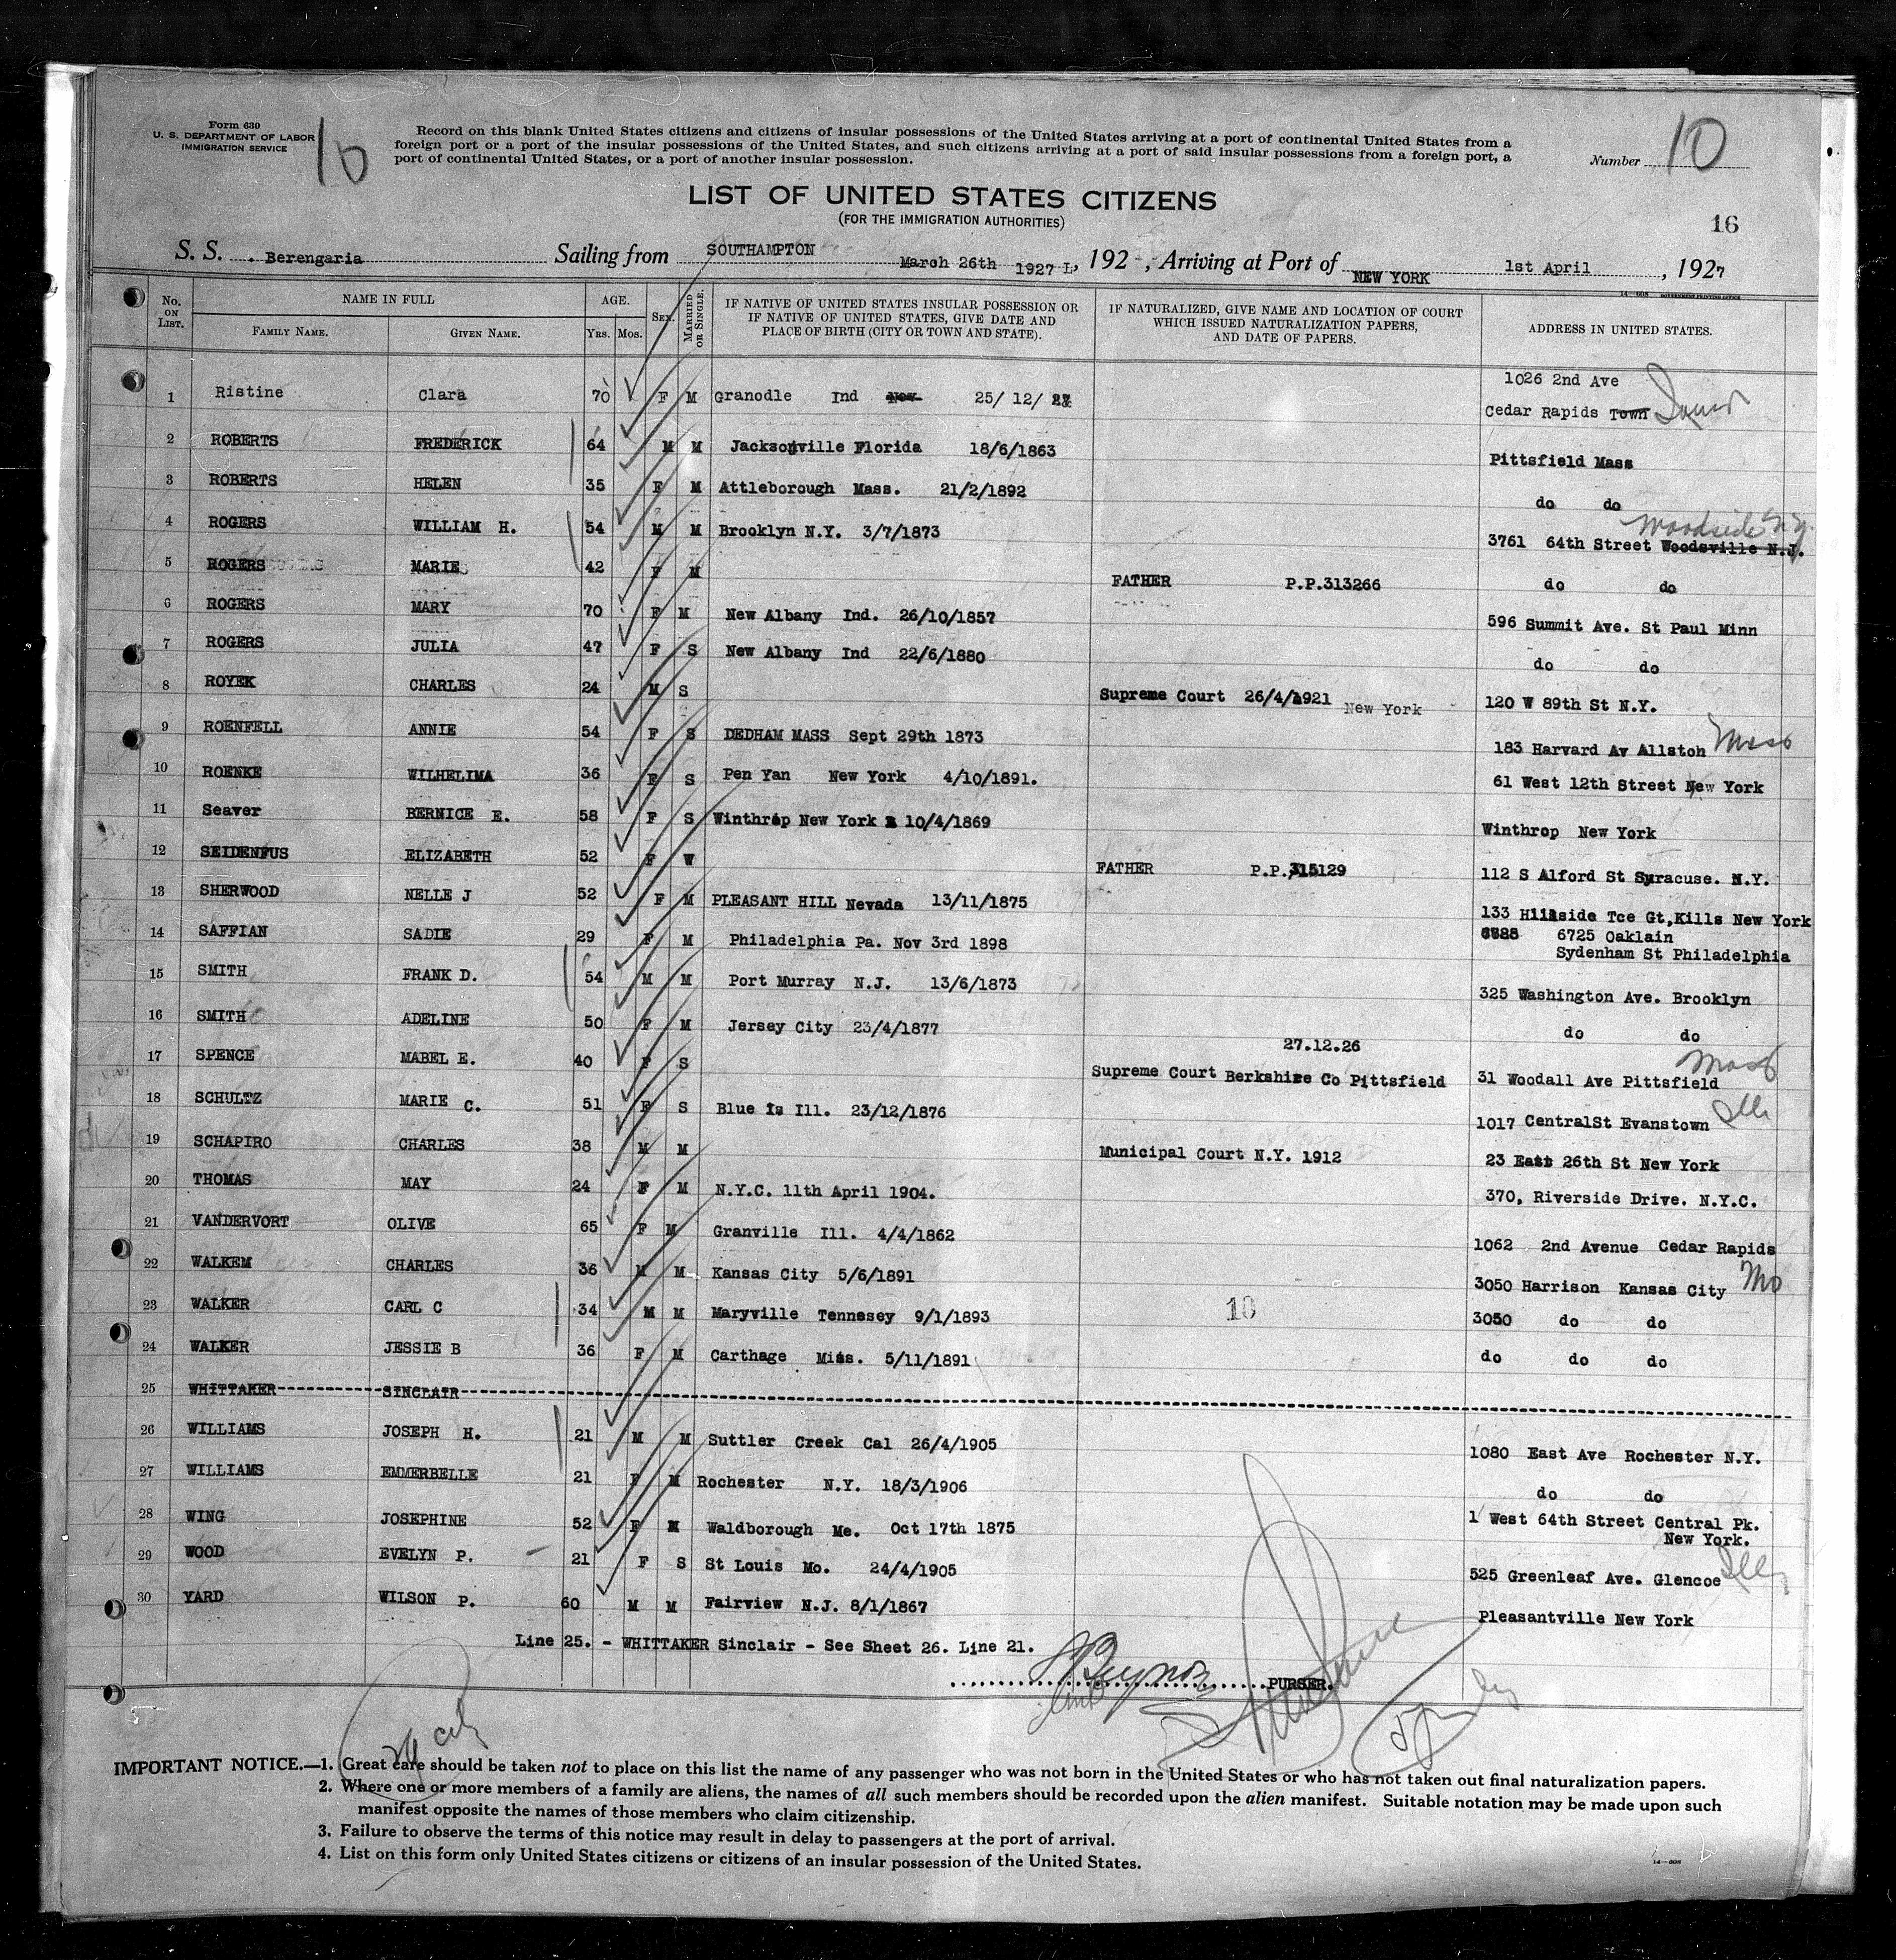 Form 630
U. S. DEPARTMENT OF LABOR
IMMIGRATION SERVICE
10
Record on this blank United States citizens and citizens of insular possessions of the United States arriving at a port of continental United States from a
foreign port or a port of the insular possessions of the United States, and such citizens arriving at a port of said insular possessions from a foreign port, a
port of continental United States, or a port of another insular possession.
Number 10
LIST OF UNITED STATES CITIZENS
(FOR THE IMMIGRATION AUTHORITIES)
16
S. S. Berengaria Sailing from SOUTHAMPTON March 26th 1927, 192 , Arriving at Port of NEW YORK 1st April, 1927
No. ON LIST. NAME IN FULL AGE. SEX. MARRIED OR SINGLE. IF NATIVE OF UNITED STATES INSULAR POSSESSION OR IF NATIVE OF UNITED STATES, GIVE DATE AND PLACE OF BIRTH (CITY OR TOWN AND STATE). IF NATURALIZED, GIVE NAME AND LOCATION OF COURT WHICH ISSUED NATURALIZATION PAPERS, AND DATE OF PAPERS. ADDRESS IN UNITED STATES.
FAMILY NAME. GIVEN NAME. Yrs. Mos.
1 Ristine Clara 70 F M Granodle Ind 25/ 12/ 1026 2nd Ave Cedar Rapids Town Iowa
2 ROBERTS FREDERICK 64 M M Jacksonville Florida 18/6/1863 Pittsfield Mass
3 ROBERTS HELEN 35 F M Attleborough Mass. 21/2/1892 do do
4 ROGERS WILLIAM H. 54 M M Brooklyn N.Y. 3/7/1873 3761 64th Street Woodsville N.J. Woodside N.Y.
5 ROGERS MARIE 42 F M FATHER P.P.313266 do do
6 ROGERS MARY 70 F M New Albany Ind. 26/10/1857 596 Summit Ave. St Paul Minn
7 ROGERS JULIA 47 F S New Albany Ind 22/6/1880 do do
8 ROYEK CHARLES 24 M S Supreme Court 26/4/1921 New York 120 W 89th St N.Y.
9 ROENFELL ANNIE 54 F S DEDHAM MASS Sept 29th 1873 183 Harvard Av Allston Mass
10 ROENKE WILHELIMA 36 F S Pen Yan New York 4/10/1891. 61 West 12th Street New York
11 Seaver BERNICE E. 58 F S Winthrop New York 10/4/1869 Winthrop New York
12 SEIDENFUS ELIZABETH 52 F W FATHER P.P.315129 112 S Alford St Syracuse. N.Y.
13 SHERWOOD NELLE J 52 F M PLEASANT HILL Nevada 13/11/1875 133 Hillside Tce Gt,Kills New York
14 SAFFIAN SADIE 29 F M Philadelphia Pa. Nov 3rd 1898 6725 Oaklain
Sydenham St Philadelphia
15 SMITH FRANK D. 54 M M Port Murray N.J. 13/6/1873 325 Washington Ave. Brooklyn
16 SMITH ADELINE 50 F M Jersey City 23/4/1877 do do
17 SPENCE MABEL E. 40 F S 27.12.26 Supreme Court Berkshire Co Pittsfield 31 Woodall Ave Pittsfield Mass
18 SCHULTZ MARIE C. 51 F S Blue Is Ill. 23/12/1876 1017 CentralSt Evanstown Ill
19 SCHAPIRO CHARLES 38 M M Municipal Court N.Y. 1912 23 East 26th St New York
20 THOMAS MAY 24 F M N.Y.C. 11th April 1904. 370, Riverside Drive. N.Y.C.
21 VANDERVORT OLIVE 65 F M Granville Ill. 4/4/1862 1062 2nd Avenue Cedar Rapids
22 WALKEM CHARLES 36 M M Kansas City 5/6/1891 3050 Harrison Kansas City Mo
23 WALKER CARL C 34 M M Maryville Tennesey 9/1/1893 10 3050 do do
24 WALKER JESSIE B 36 F M Carthage Miss. 5/11/1891 do do do
25 WHITTAKER SINCLAIR
26 WILLIAMS JOSEPH H. 21 M M Suttler Creek Cal 26/4/1905 1080 East Ave Rochester N.Y.
27 WILLIAMS EMMERBELLE 21 F M Rochester N.Y. 18/3/1906 do do
28 WING JOSEPHINE 52 F M Waldborough Me. Oct 17th 1875 1 West 64th Street Central Pk.
New York.
29 WOOD EVELYN P. 21 F S St Louis Mo. 24/4/1905 525 Greenleaf Ave. Glencoe Ill
30 YARD WILSON P. 60 M M Fairview N.J. 8/1/1867 Pleasantville New York
Line 25. - WHITTAKER Sinclair - See Sheet 26. Line 21.
PURSER.
IMPORTANT NOTICE.—1. Great care should be taken not to place on this list the name of any passenger who was not born in the United States or who has not taken out final naturalization papers.
2. Where one or more members of a family are aliens, the names of all such members should be recorded upon the alien manifest. Suitable notation may be made upon such
manifest opposite the names of those members who claim citizenship.
3. Failure to observe the terms of this notice may result in delay to passengers at the port of arrival.
4. List on this form only United States citizens or citizens of an insular possession of the United States.